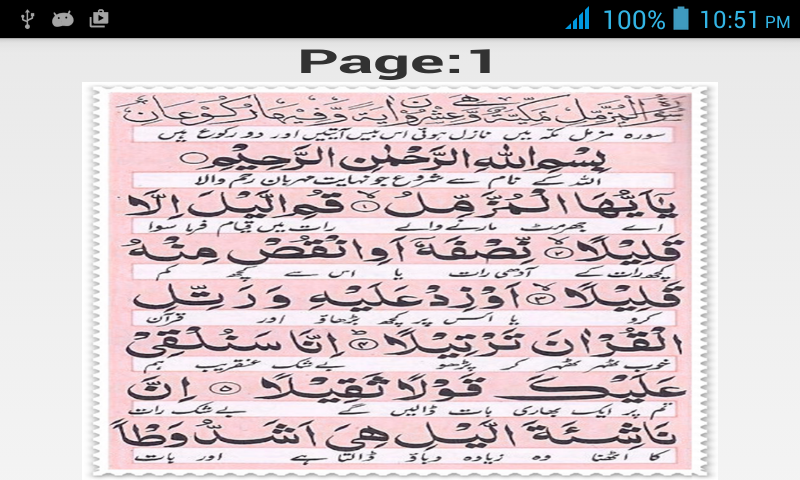 100% 10:51 PM
Page:1
سورة المزمل مكية وهي عشرون اية وفيها ركوعان
سورہ مزمل مکہ میں نازل ہوئی اس میں بیس آیتیں اور دو رکوع ہیں
بِسْمِ اللهِ الرَّحْمٰنِ الرَّحِيْمِ
اللہ کے نام سے شروع جو نہایت مہربان رحم والا
يٰۤاَيُّهَا الْمُزَّمِّلُ ۙ۱ قُمِ الَّيْلَ اِلَّا
اے جھرمٹ مارنے والے رات میں قیام فرما سوا
قَلِيْلًا ۙ۲ نِّصْفَهٗۤ اَوِ انْقُصْ مِنْهُ
کچھ رات کے آدھی رات یا اس سے کچھ کم
قَلِيْلًا ۙ۳ اَوْ زِدْ عَلَيْهِ وَ رَتِّلِ
کرو یا اس پر کچھ بڑھاؤ اور قرآن
الْقُرْاٰنَ تَرْتِيْلًا ؕ۴ اِنَّا سَنُلْقِيْ
خوب ٹھہر ٹھہر کر پڑھو بے شک عنقریب ہم
عَلَيْكَ قَوْلًا ثَقِيْلًا ۵ اِنَّ
تم پر ایک بھاری بات ڈالیں گے بے شک رات
نَاشِئَةَ الَّيْلِ هِيَ اَشَدُّ وَطْاً
کا اٹھنا وہ زیادہ دباؤ ڈالتا ہے اور بات